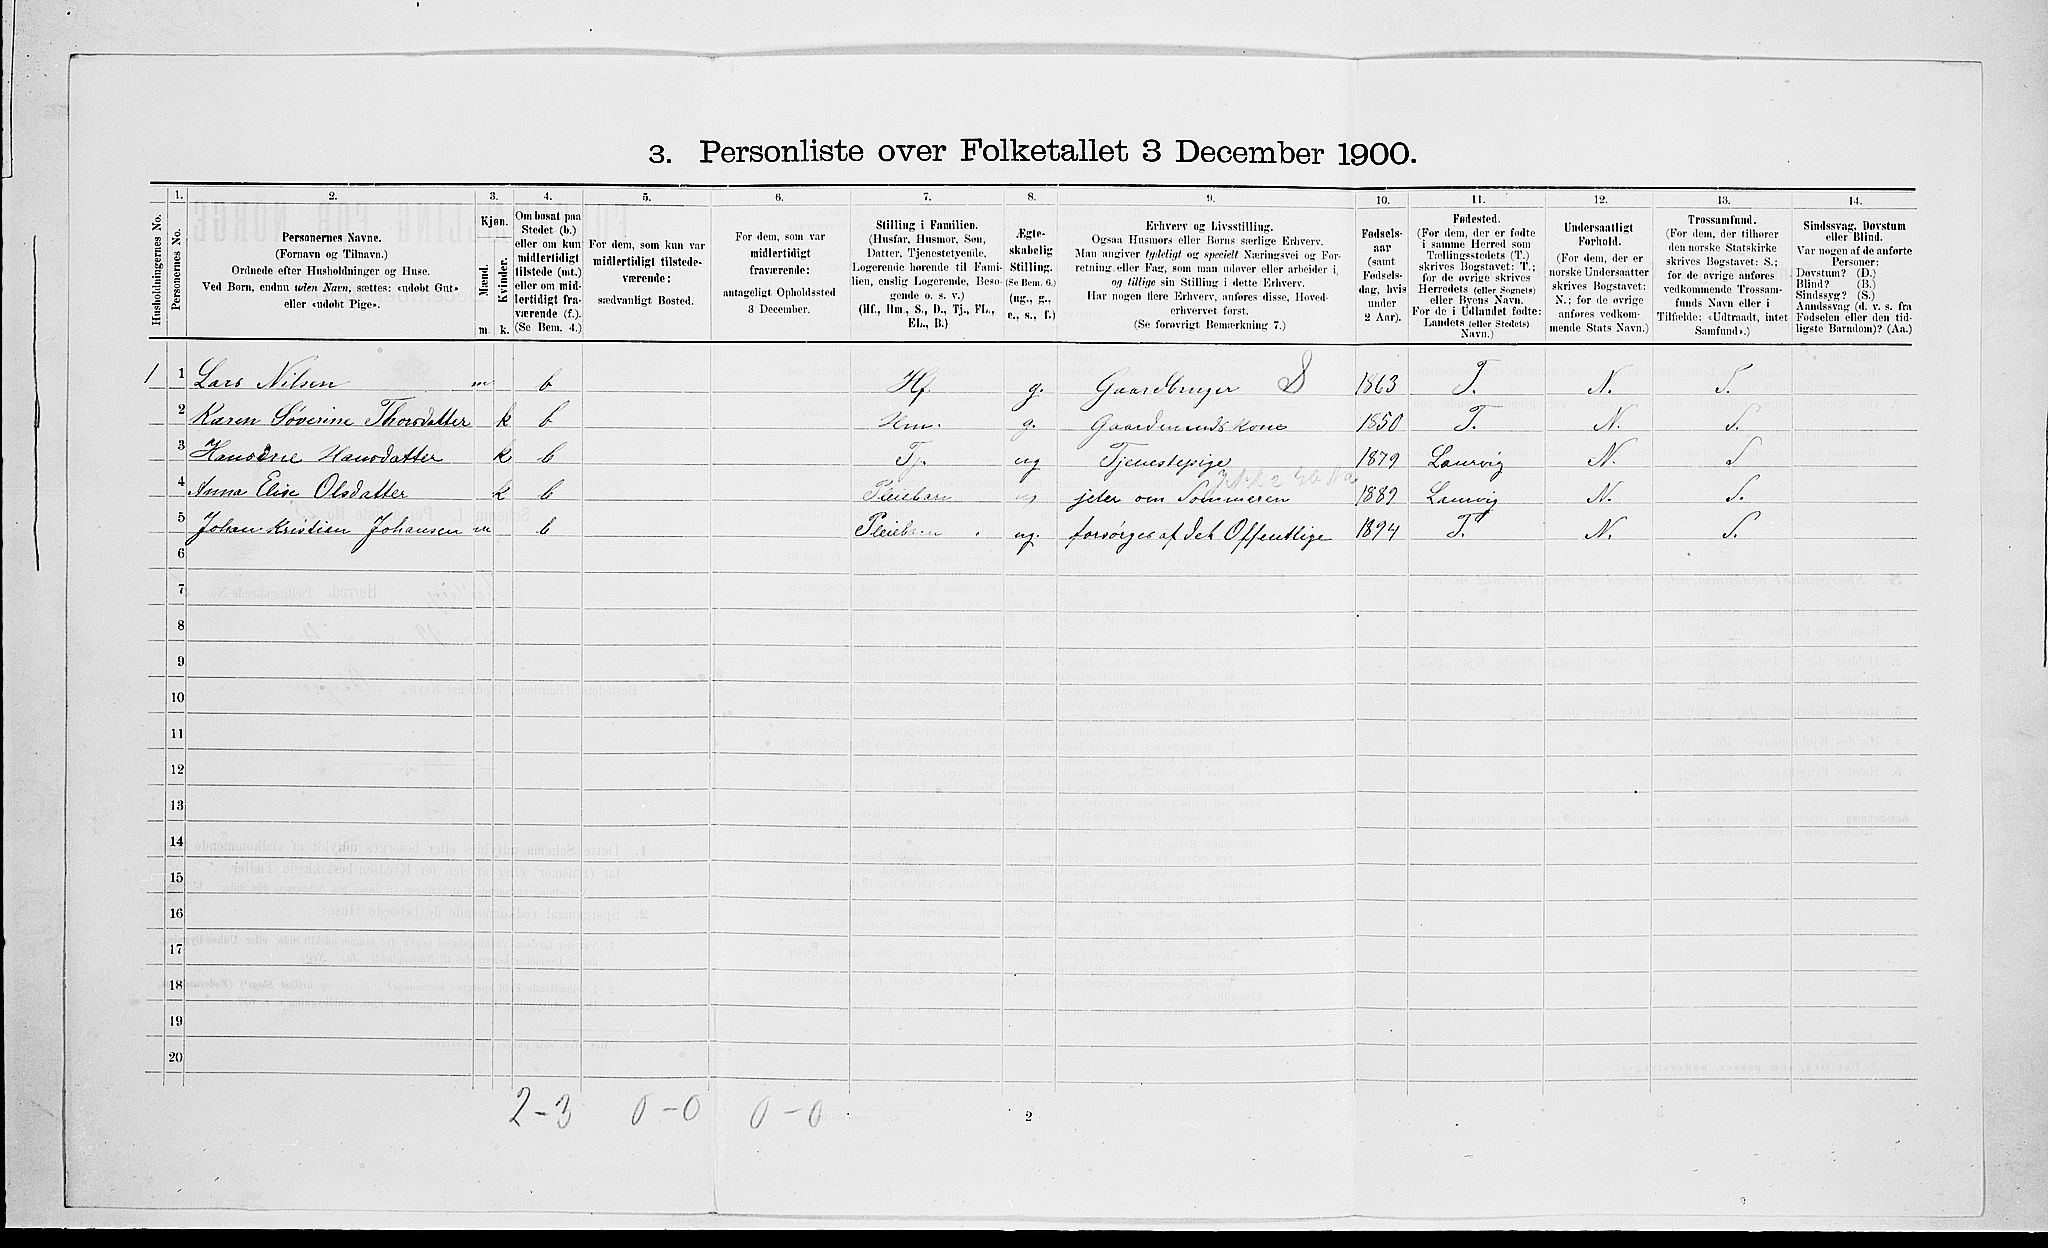 3. Personliste over Folketallet 3 December 1900.
Husholdningernes No.
1. Personernes No.
2. Personernes Navne.
(Fornavn og Tilnavn.)
Ordnede efter Husholdninger og Huse.
Ved Børn, endnu uden Navn, sættes: «udøbt Gut»
eller «udøbt Pige».
3. Kjøn.
Mænd. Kvinder.
m. k.
4. Om bosat paa
Stedet (b.)
eller om kun
midlertidigt
tilstede (mt.)
eller om mid-
lertidigt fra-
værende (f.).
(Se Bem. 4.)
5. For dem, som kun var
midlertidigt tilstede-
værende:
sædvanligt Bosted.
6. For dem, som var
midlertidigt
fraværende:
antageligt Opholdssted
3 December.
7. Stilling i Familien.
(Husfar, Husmor, Søn,
Datter, Tjenestetyende,
Logerende hørende til Fami-
lien, enslig Logerende, Besø-
gende o. s. v.)
(Hf., Hm., S., D., Tj., FL.,
EL., B.)
8. Ægte-
skabelig
Stilling.
(Se Bem. 6.)
(ug., g.,
e., s., f.)
9. Erhverv og Livsstilling.
Ogsaa Husmors eller Børns særlige Erhverv.
Man angiver tydeligt og specielt Næringsvei og For-
retning eller Fag, som man udøver eller arbeider i,
og tillige sin Stilling i dette Erhverv.
Har nogen flere Erhverv, anføres disse, Hoved-
erhvervet først.
(Se forøvrigt Bemærkning 7.)
10. Fødsels-
aar
(samt
Fødsels-
dag, hvis
under
2 Aar).
11. Fødested.
(For dem, der er fødte
i samme Herred som
Tællingsstedets (T.)
skrives Bogstavet: T.;
for de øvrige skrives
Herredets (eller Sognets)
eller Byens Navn.
For de i Udlandet fødte:
Landets (eller Stedets)
Navn.)
12. Undersaatligt
Forhold.
(For dem, der er
norske Undersaatter
skrives Bogstavet:
N.; for de øvrige
anføres vedkom-
mende Stats Navn.)
13. Trossamfund.
(For dem, der tilhører
den norske Statskirke
skrives Bogstavet: S.;
for de øvrige anføres
vedkommende Trossam-
funds Navn eller i
Tilfælde: «Udtraadt, intet
Samfund».)
14. Sindssvag, Døvstum
eller Blind.
Var nogen af de anførte
Personer:
Døvstum? (D.)
Blind? (B.)
Sindssyg? (S.)
Aandssvag (d. v. s. fra
Fødselen eller den tid-
ligste Barndom)? (Aa.)
1 1 Lars Nilsen m b Hf. g. Gaardbruger S 1863 T. N. S.
2 Karen Søverine Thorsdatter k b Hm. g. Gaardmandskone 1850 T. N. S.
3 Hansine Hansdatter k b Tj. ug Tjenestepige 1879 Laurvig N. S
4 Anna Elise Olsdatter k b Pleiebarn ug jeter om Sommeren 1889 Laurvig N. S.
5 Johan Kristian Johansen m b Pleiebarn ug. forsørges af det Offentlige 1894 T. N. S.
6
7
8
9
10
11
12
13
14
15
16
17
18
19
20
2-3 0-0 0-0
2